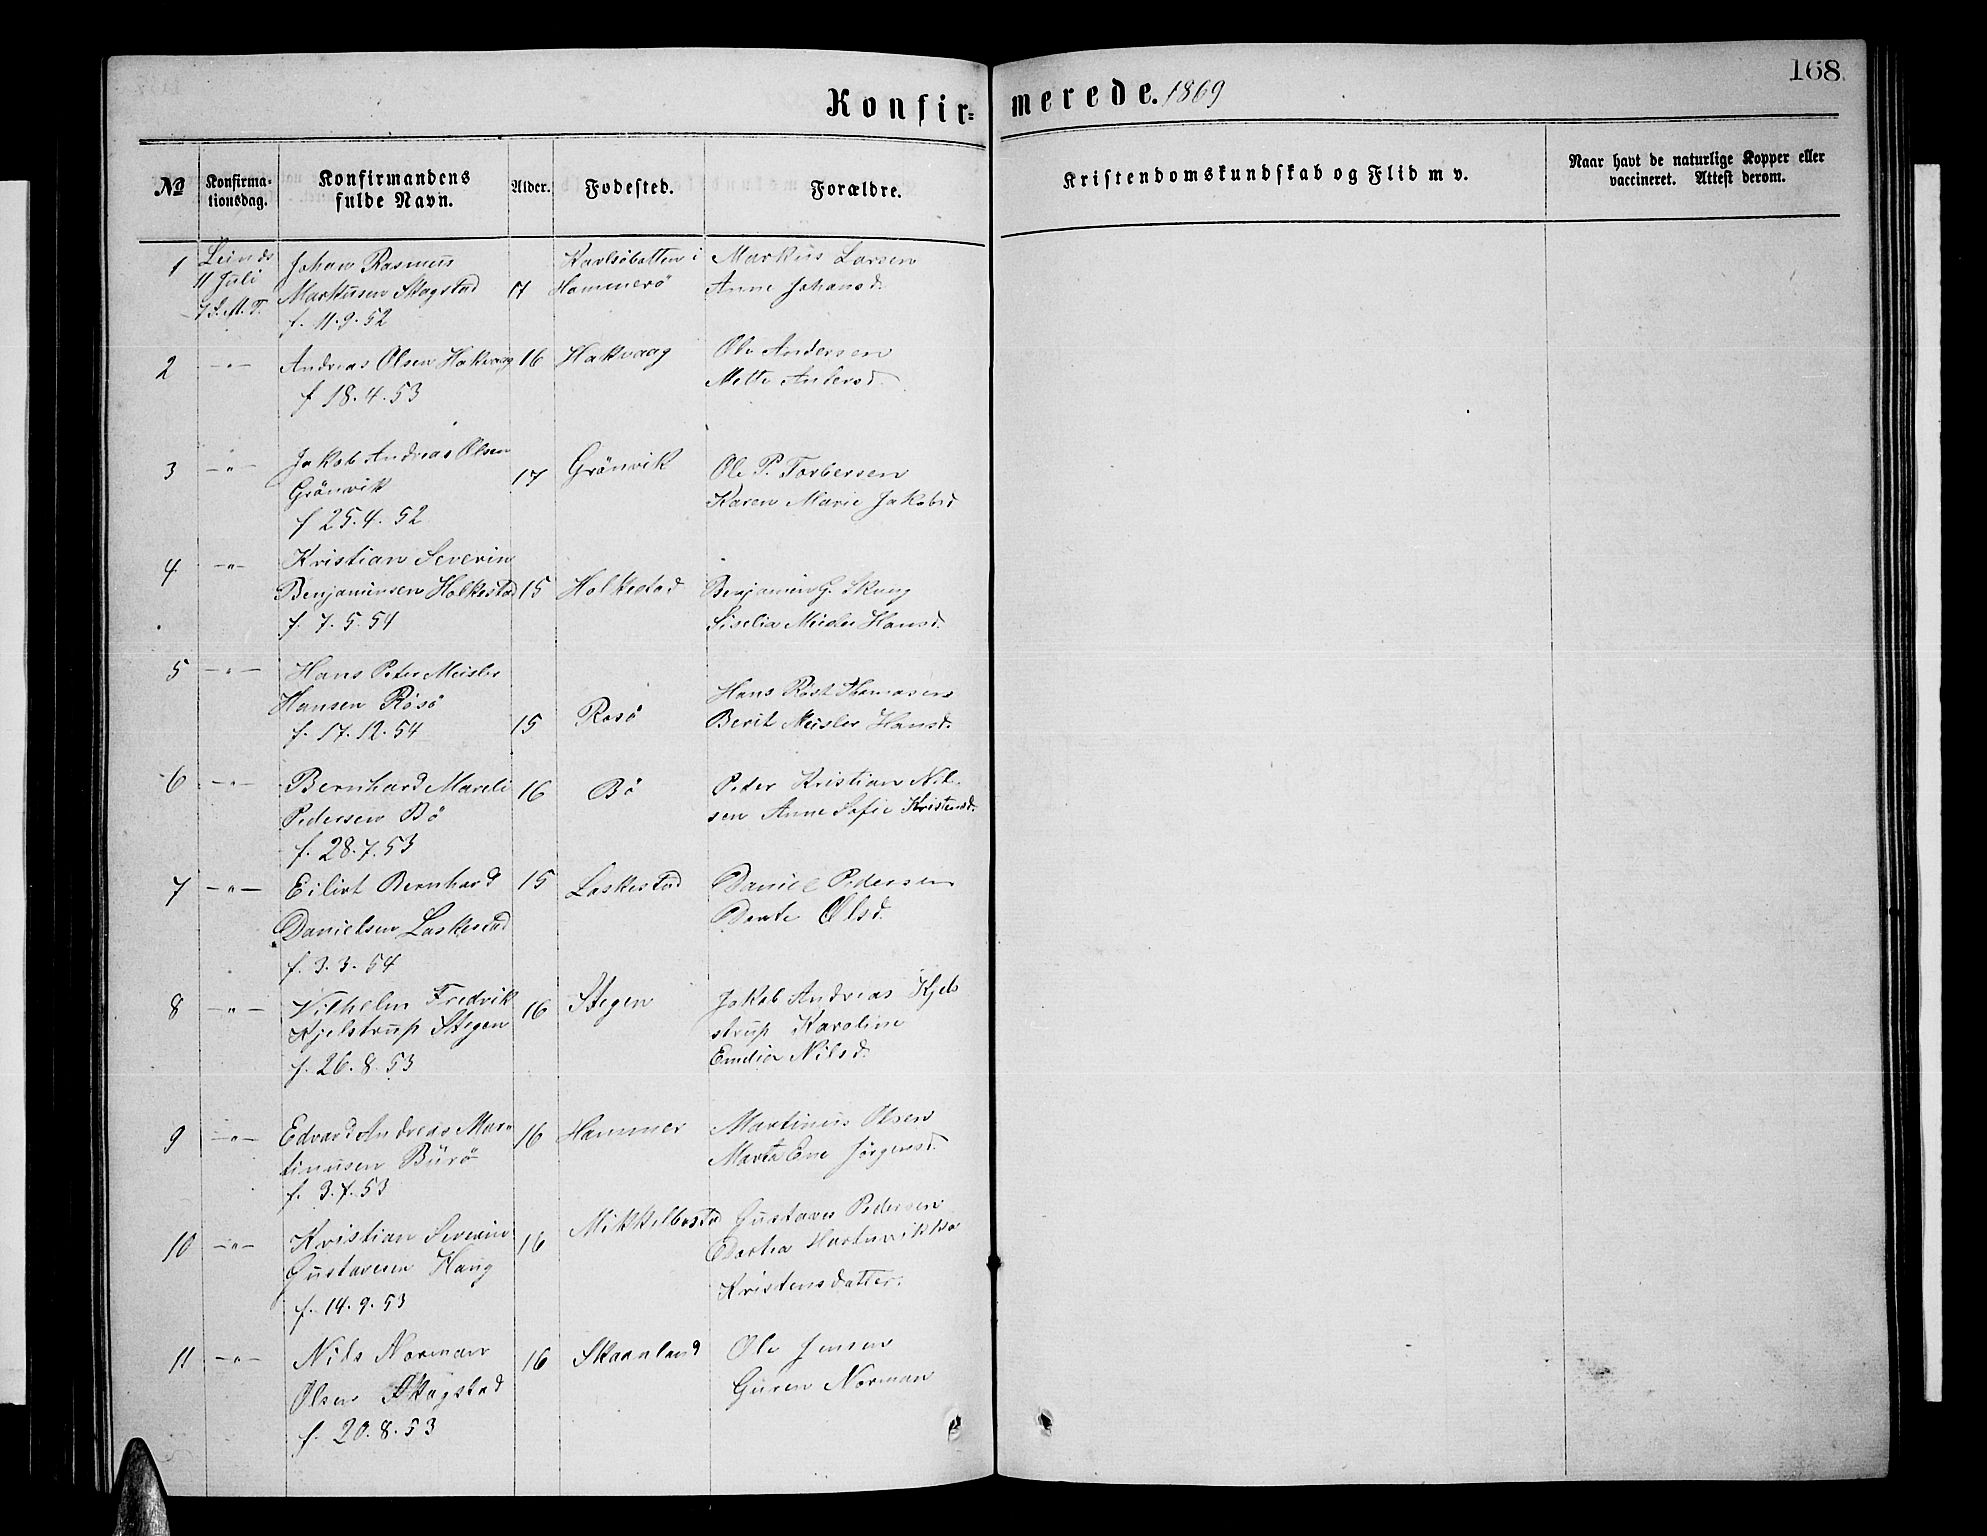 168
Konfirmerede. 1869
№
Konfirma-
tionsdag.
Konfirmandens
fulde Navn.
Alder.
Fødested.
Forældre.
Kristendomskundskab og Flid m v.
Naar havt de naturlige Kopper eller
vaccineret. Attest derom.
1
Leinds
11 Juli
7 S. M. T.
Johan Rasmus
Markusen Skogstad
f. 11.9.52
17
Karlsöbatten i
Hammerö
Markus Larsen
Anne Johansd.
2
-"-
Andreas Olsen Hakvaag
f 18.4.53
16
Hakvaag
Ole Andersen
Mette Andersd.
3
-"-
Jakob Andreas Olsen
Grönvik
f 25.4.52
17
Grönvik
Ole P. Torbersen
Karen Marie Jakobsd
4
-"-
Kristian Severin
Benjaminsen Holkestad
f. 7.5.54
15
Holkestad
Benjamin G. Skaug
Siselia Meisler Hansd.
5
-"-
Hans Peter Meisler
Hansen Rösö
f. 17.12.54
15
Rosö
Hans Röst Thomasen
Berit Meisler Hansd.
6
-"-
Bernhard Mareli
Pedersen Bö
f. 28.7.53
16
Bö
Peter Kristian Nil-
sen Anne Sofie Kristensd.
7
-"-
Eilert Bernhard
Danielsen Laskestad
f. 3.3.54
15
Laskestad
Daniel Pedersen
Berte Olsd.
8
-"-
Vilhelm Fredrik
Kjelstrup Stegen
f. 26.8.53
16
Stegen
Jakob Andreas Kjel-
strup Karoline
Emelia Nilsd.
9
-"-
Edvard Andreas Mar-
tinusen Burö
f. 3.7.53
16
Hammer
Martinus Olsen
Marta Ene Jörgensd.
10
-"-
Kristian Severin
Gustavsen Haug
f. 14.9.53
16
Mikkelbostad
Gustav Pedersen
Dortea Hartvikka
Kristensdatter.
11
-"-
Nils Norman
Olsen Skogstad
f. 20.8.53
16
Skaanland
Ole Jensen
Guren Norman